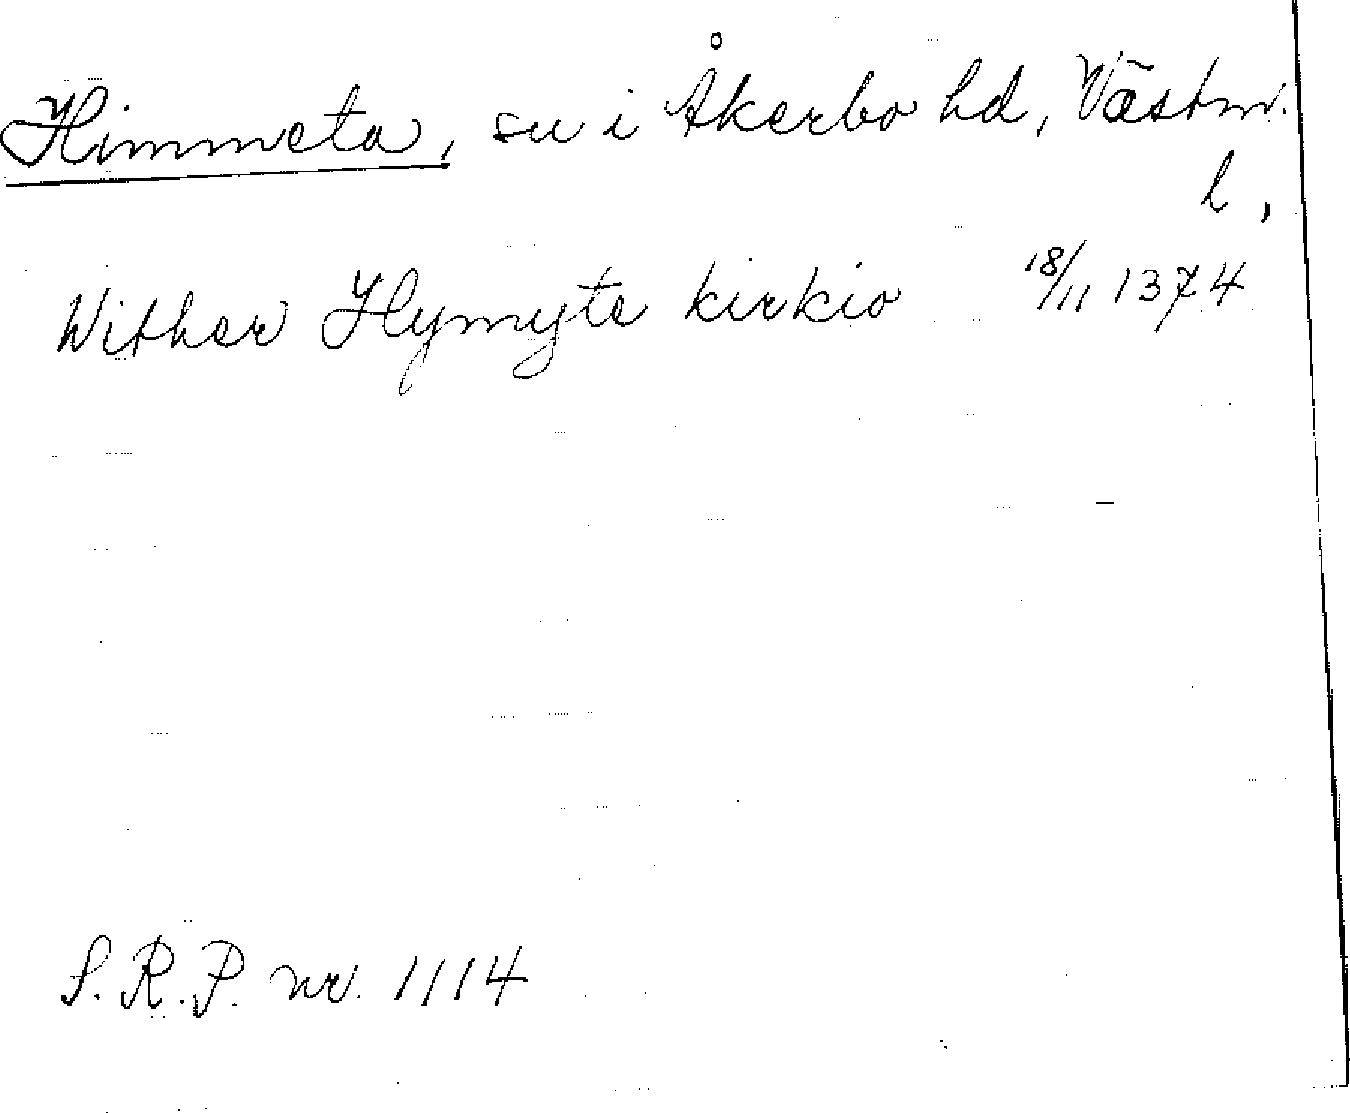 Himmeta, sn i Åkerbo hd, Västm.
l.
Wither Hymyte kirkio 18/11 1374
S.R.P. nr. 1114